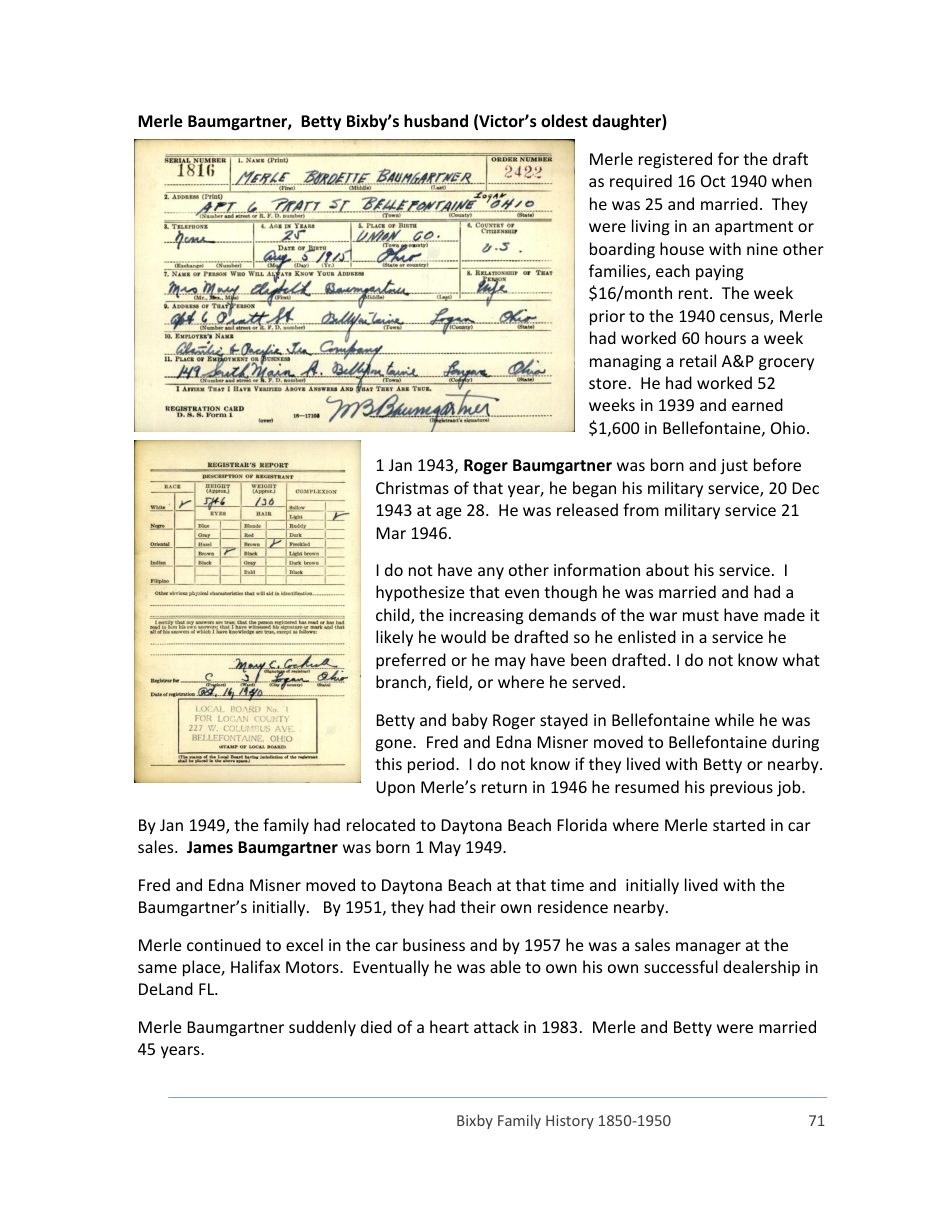 Merle Baumgartner, Betty Bixby's husband (Victor's oldest daughter)
SERIAL NUMBER
1816
1. NAME (Print)
MERLE BURDETTE BAUMGARTNER
(First) (Middle) (Last)
ORDER NUMBER
2422
2. ADDRESS (Print)
APT 6 PRATT ST BELLEFONTAINE LOGAN OHIO
(Number and street or R. F. D. number) (Town) (County) (State)
3. TELEPHONE
None
(Exchange) (Number)
4. AGE IN YEARS
25
DATE OF BIRTH
Aug 5 1915
(Mo.) (Day) (Yr.)
5. PLACE OF BIRTH
UNION CO.
(Town or county)
Ohio
(State or country)
6. COUNTRY OF CITIZENSHIP
U.S.
7. NAME OF PERSON WHO WILL ALWAYS KNOW YOUR ADDRESS
Mrs Mary Baumgartner
(Mr., Mrs., Miss) (First) (Middle) (Last)
8. RELATIONSHIP OF THAT PERSON
Wife
9. ADDRESS OF THAT PERSON
Apt 6 Pratt St Bellefontaine Logan Ohio
(Number and street or R. F. D. number) (Town) (County) (State)
10. EMPLOYER'S NAME
Atlantic & Pacific Tea Company
11. PLACE OF EMPLOYMENT OR BUSINESS
149 South Main St. Bellefontaine Logan Ohio
(Number and street or R. F. D. number) (Town) (County) (State)
I AFFIRM THAT I HAVE VERIFIED ABOVE ANSWERS AND THAT THEY ARE TRUE.
REGISTRATION CARD
D. S. S. Form 1
(over)
16—17105
M B Baumgartner
(Registrant's signature)
Merle registered for the draft
as required 16 Oct 1940 when
he was 25 and married. They
were living in an apartment or
boarding house with nine other
families, each paying
$16/month rent. The week
prior to the 1940 census, Merle
had worked 60 hours a week
managing a retail A&P grocery
store. He had worked 52
weeks in 1939 and earned
$1,600 in Bellefontaine, Ohio.
REGISTRAR'S REPORT
DESCRIPTION OF REGISTRANT
RACE
HEIGHT (Approx.)
WEIGHT (Approx.)
COMPLEXION
5/46
130
White
EYES
HAIR
Sallow
Light
Negro
Blue
Blonde
Ruddy
Gray
Red
Dark
Oriental
Hazel
Brown
Freckled
Brown
Black
Light brown
Indian
Black
Gray
Dark brown
Bald
Black
Filipino
Other obvious physical characteristics that will aid in identification
I certify that my answers are true; that the person registered has read or has had
read to him his own answers; that I have witnessed his signature or mark and that
all of his answers of which I have knowledge are true, except as follows:
Mary C.
(Signature of registrar)
Registrar for C 31 Logan Ohio
(Precinct) (Ward) (City or county) (State)
Date of registration Oct. 16, 1940
LOCAL BOARD No. 1
FOR LOGAN COUNTY
227 W. COLUMBUS AVE.
BELLEFONTAINE, OHIO
(STAMP OF LOCAL BOARD)
(The stamp of the Local Board having jurisdiction of the registrant
shall be placed in the above space.)
1 Jan 1943, Roger Baumgartner was born and just before
Christmas of that year, he began his military service, 20 Dec
1943 at age 28. He was released from military service 21
Mar 1946.
I do not have any other information about his service. I
hypothesize that even though he was married and had a
child, the increasing demands of the war must have made it
likely he would be drafted so he enlisted in a service he
preferred or he may have been drafted. I do not know what
branch, field, or where he served.
Betty and baby Roger stayed in Bellefontaine while he was
gone. Fred and Edna Misner moved to Bellefontaine during
this period. I do not know if they lived with Betty or nearby.
Upon Merle's return in 1946 he resumed his previous job.
By Jan 1949, the family had relocated to Daytona Beach Florida where Merle started in car
sales. James Baumgartner was born 1 May 1949.
Fred and Edna Misner moved to Daytona Beach at that time and initially lived with the
Baumgartner's initially. By 1951, they had their own residence nearby.
Merle continued to excel in the car business and by 1957 he was a sales manager at the
same place, Halifax Motors. Eventually he was able to own his own successful dealership in
DeLand FL.
Merle Baumgartner suddenly died of a heart attack in 1983. Merle and Betty were married
45 years.
Bixby Family History 1850-1950 71